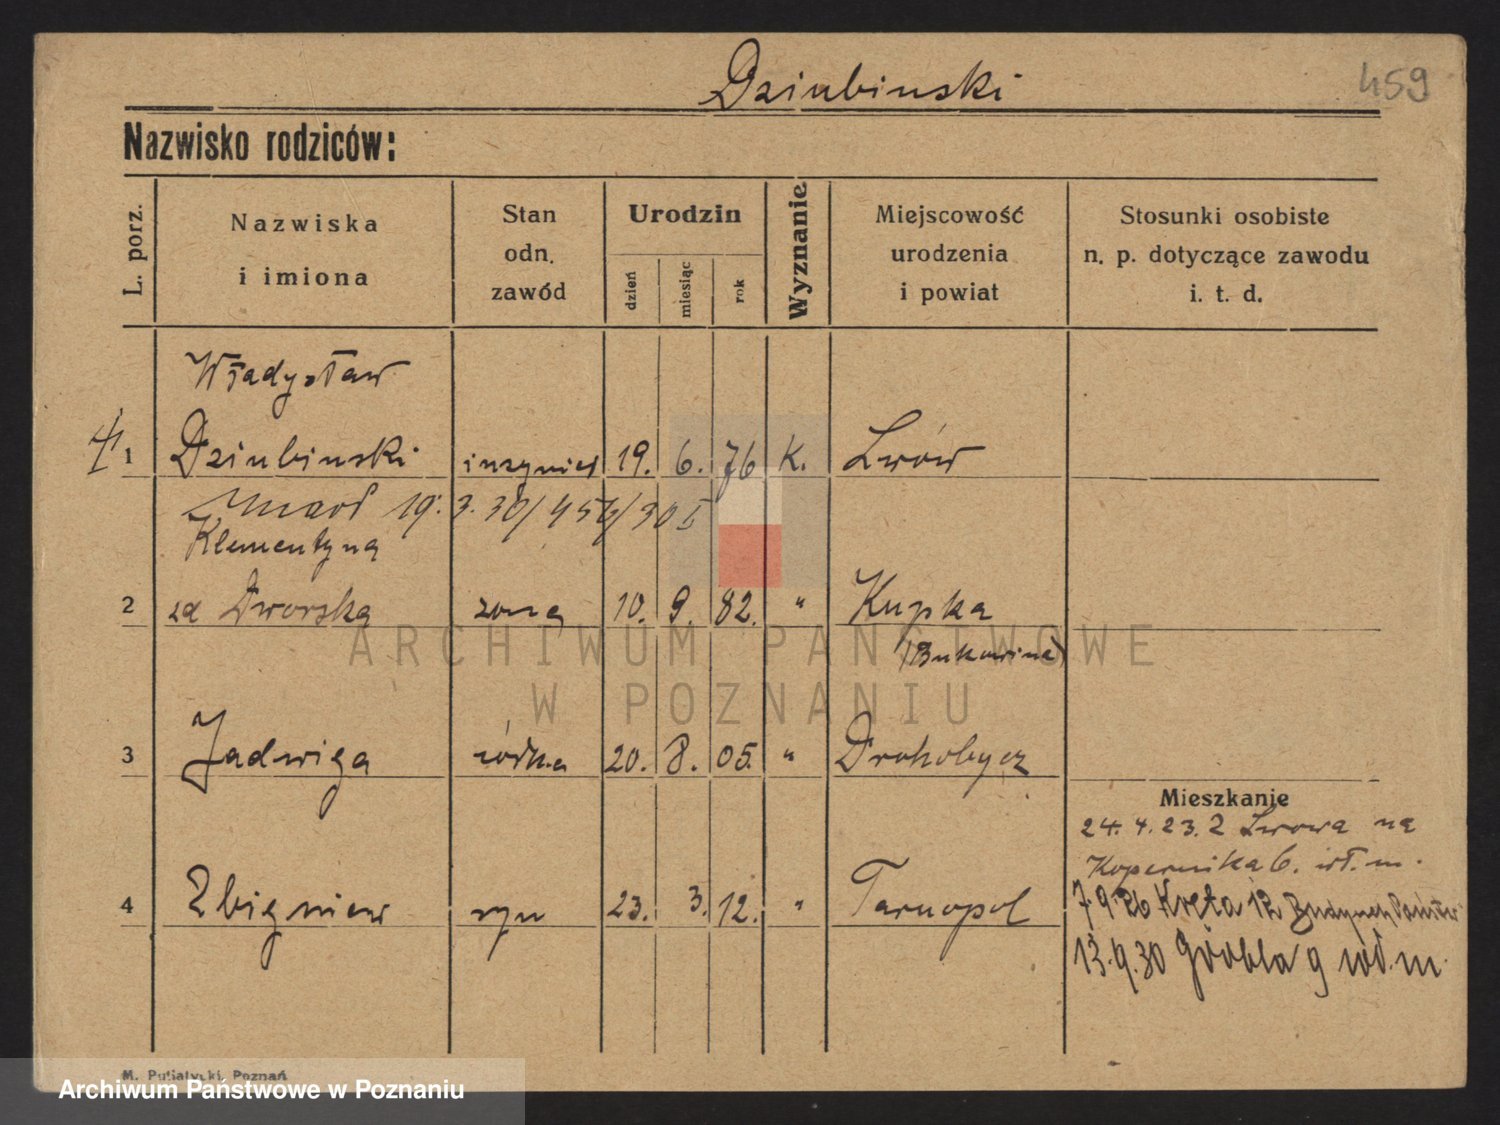 Dziubinski
459
Nazwisko rodziców:
L. porz.
Nazwiska
i imiona
Stan
odn.
zawód
Urodzin
dzień
miesiąc
rok
Wyznanie
Miejscowość
urodzenia
i powiat
Stosunki osobiste
n. p. dotyczące zawodu
i. t. d.
Władysław
1 Dziubinski inżynier 19. 6. 76 K. Lwów
zmarł 19. 3. 30/456/30 I
Klementyna
2 zd Dworska żona 10. 9. 82. " Kupka
(Bukowina)
3 Jadwiga córka 20. 8. 05. " Drohobycz
Mieszkanie
24. 4. 23. z Lwowa na
Kopernika 6. wł. m.
4 Zbigniew syn 23. 3. 12. " Tarnopol
7.9.26 Kręta 12
13.9.30 Grobla 9 wł. m.
ARCHIWUM PAŃSTWOWE
W POZNANIU
M. Putiatycki, Poznań
Archiwum Państwowe w Poznaniu